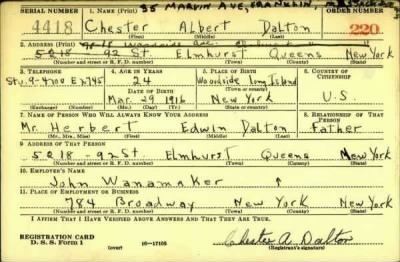 35 MARVIN AVE, FRANKLIN,
SERIAL NUMBER 1. NAME (Print) ORDER NUMBER
4418 Chester Albert Dalton 220
(First) (Middle) (Last)
2. ADDRESS (Print)
5218 92 St. Elmhurst Queens New York
(Number and street or R. F. D. number) (Town) (County) (State)
3. TELEPHONE 4. AGE IN YEARS 5. PLACE OF BIRTH 6. COUNTRY OF CITIZENSHIP
24 Woodside Long Island
DATE OF BIRTH
Mar. 29 1916 New York U.S.
(Exchange) (Number) (Mo.) (Day) (Yr.) (State or country)
7. NAME OF PERSON WHO WILL ALWAYS KNOW YOUR ADDRESS 8. RELATIONSHIP OF THAT PERSON
Mr. Herbert Edwin Dalton Father
(Mr., Mrs., Miss) (First) (Middle) (Last)
9. ADDRESS OF THAT PERSON
5218-92 St Elmhurst Queens New York
(Number and street or R. F. D. number) (Town) (County) (State)
10. EMPLOYER'S NAME
John Wanamaker
11. PLACE OF EMPLOYMENT OR BUSINESS
784 Broadway New York New York
(Number and street or R. F. D. number) (Town) (County) (State)
I AFFIRM THAT I HAVE VERIFIED ABOVE ANSWERS AND THAT THEY ARE TRUE.
REGISTRATION CARD
D. S. S. Form 1 (over) 16-17105 Chester A. Dalton
(Registrant's signature)